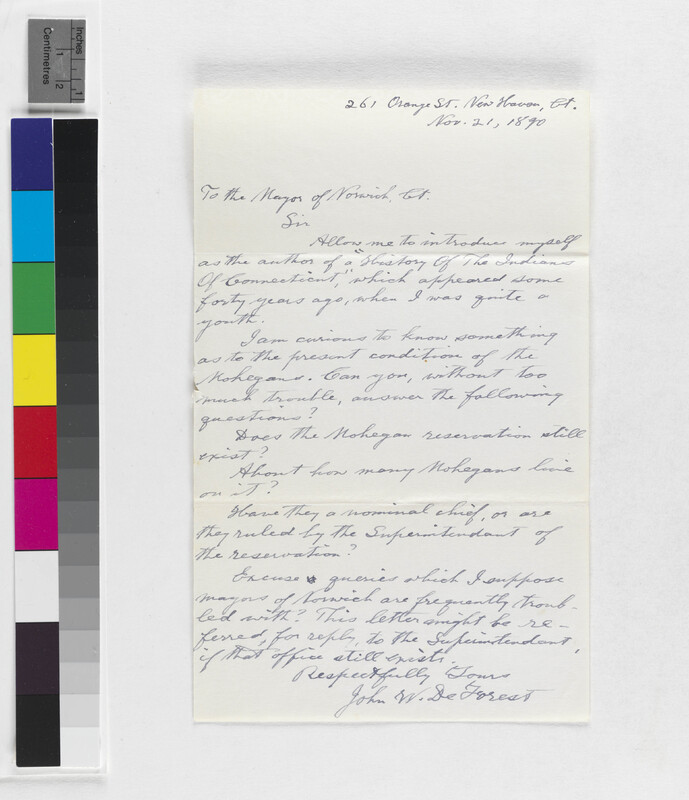 Inches
Centimetres
1
1
2
261 Orange St. New Haven, Ct.
Nov. 21, 1890
To the Mayor of Norwich, Ct.
Sir
Allow me to introduce myself
as the author of a "History Of The Indians
Of Connecticut," which appeared some
forty years ago, when I was quite a
youth.
I am curious to know something
as to the present condition of the
Mohegans. Can you, without too
much trouble, answer the following
questions?
Does the Mohegan reservation still
exist?
About how many Mohegans live
on it?
Have they a nominal chief, or are
they ruled by the Superintendant of
the reservation?
Excuse queries which I suppose
mayors of Norwich are frequently troub-
led with? This letter might be re-
ferred, for reply, to the Superintendant,
if that office still exists.
Respectfully Yours
John W. De Forest